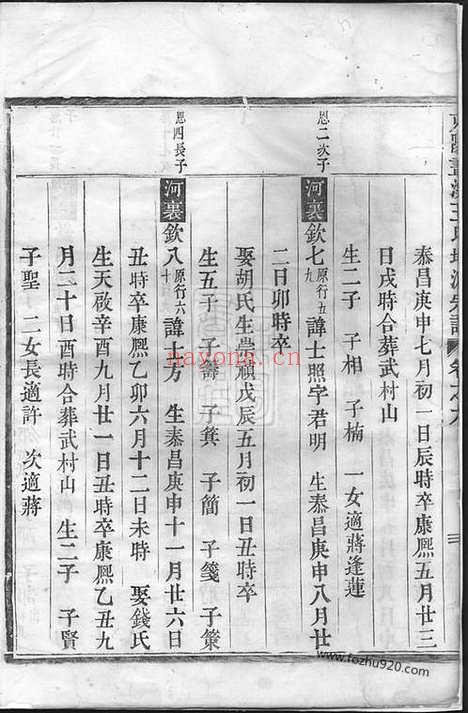 泰昌庚申七月初一日辰時卒康熙五月廿三
日戌時合葬武村山
生二子 子相 子楠 一女適蔣逢蓮
恩二次子
河裏 欽七九 原行五 諱士照字君明 生泰昌庚申八月廿
二日卯時卒
娶胡氏生崇禎戊辰五月初一日丑時卒
生五子 子壽 子箕 子簡 子箋 子策
恩四長子
河裏 欽八十 原行六 諱士方 生泰昌庚申十一月廿六日
丑時卒康熙乙卯六月十二日未時 娶錢氏
生天啟辛酉九月廿一日丑時卒康熙乙丑九
月二十日酉時合葬武村山 生二子 子賢
子聖 二女長適許 次適蔣
nayona.cn
www.fozhu920.com